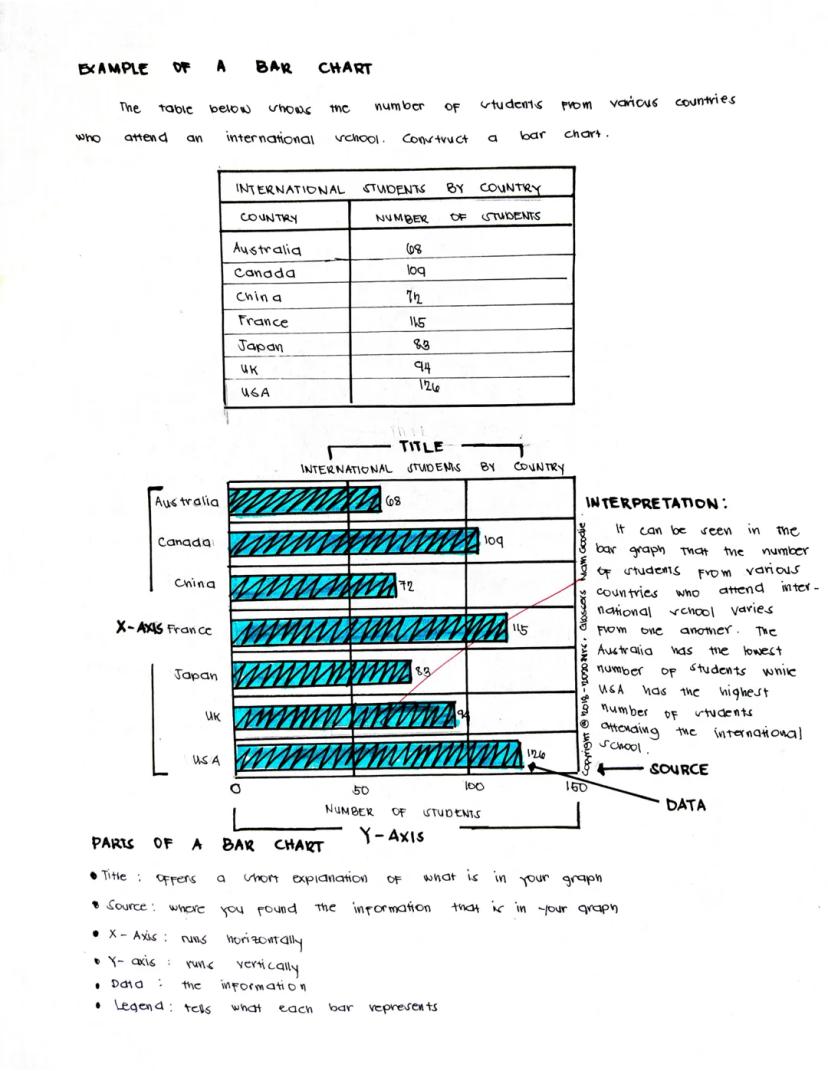 EXAMPLE OF A BAR CHART
The table below shows the number of students from various countries
who attend an international school. Construct a bar chart.
INTERNATIONAL STUDENTS BY COUNTRY
COUNTRY NUMBER OF STUDENTS
Australia 68
Canada 109
China 72
France 115
Japan 83
UK 94
USA 126
TITLE
INTERNATIONAL STUDENTS BY COUNTRY
Australia 68
Canada 109
China 72
X-AXIS France 115
Japan 83
UK 94
USA 126
0 50 100 150
NUMBER OF STUDENTS
Y-AXIS
Copyright @ 2018-2020 Mrs. Glosser's Math Goodie
INTERPRETATION:
It can be seen in the
bar graph that the number
of students from various
countries who attend inter-
national school varies
from one another. The
Australia has the lowest
number of students while
USA has the highest
number of students
attending the international
school.
SOURCE
DATA
PARTS OF A BAR CHART
• Title : offers a short explanation of what is in your graph
• Source: where you found the information that is in your graph
• X-Axis: runs horizontally
• Y-axis : runs vertically
• Data : the information
• Legend: tells what each bar represents